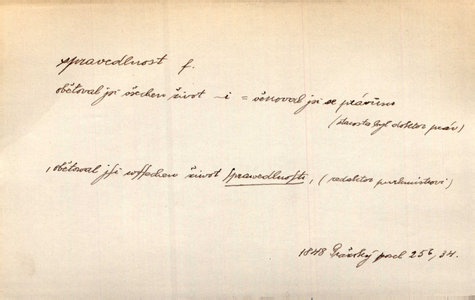 spravedlnost f.
obětoval jsi všechen život -i = věnoval jsi se právům
(starosta byl doktor práv)
„obětoval jſi wſſechen život ſpravedlnoſti, (redaktor purkmistrovi)
1848 Pražský posel 256, 34.